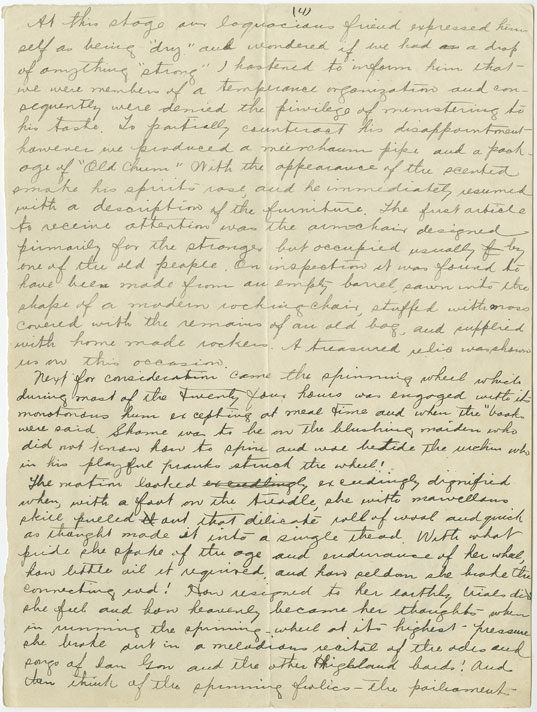 (4)
At this stage our loquacious friend expressed him
self as being "dry" and wondered if we had as a drop
of anything "strong" I hastened to inform him that
we were members of a temperance organization and con-
sequently were denied the privilege of ministering to
his taste. To partially counteract his disappointment
however we produced a meerchaum pipe and a pack-
age of "Old Chum" With the appearance of the scented
smoke his spirits rose and he immediately resumed
with a description of the furniture. The first article
to receive attention was the armchair designed
primarily for the stranger but occupied usually by
one of the old people. On inspection it was found to
have been made from an empty barrel sawn into the
shape of a modern rocking chair, stuffed with moss
covered with the remains of an old bag, and supplied
with home made rockers. A treasured relic was shown
us on this occasion.
Next for consideration came the spinning wheel which
during most of the twenty four hours was engaged with its
monotonous hum excepting at meal time and when the "books
were said. Shame was to be on the blushing maiden who
did not know how to spin and woe betide the urchin who
in his playful pranks struck the wheel!
The matron looked exceedingly dignified
when, with a foot on the treadle she with marvellous
skill pulled out that delicate roll of wool and quick
as thought made it into a single thead. With what
pride she spoke of the age and endurance of her wheel,
how little oil it required, and how seldom she broke the
connecting rod! How resigned to her earthly trials did
she feel and how heavenly became her thoughts when
in running the spinning wheel at its highest pressure
she broke out in a melodious recital of the odes and
songs of Ian Gon and the other Highland bards! And
think of the spinning frolics - the parliament-